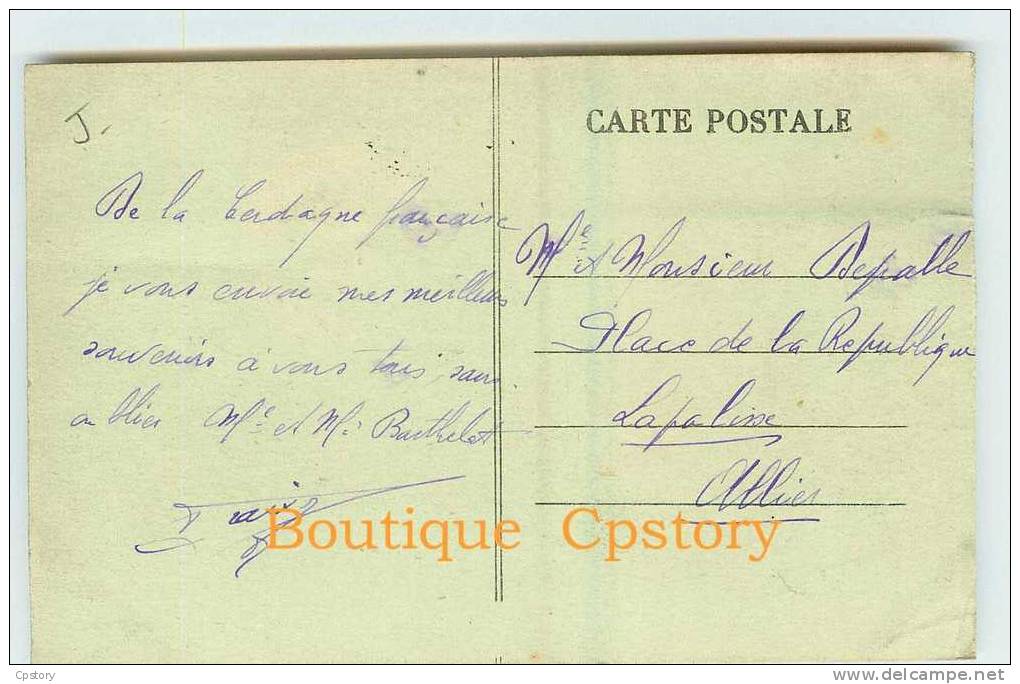 J.
CARTE POSTALE
De la Cerdagne française
je vous envoie mes meilleurs
souvenirs à vous tous, sans
oublier Mᵉ et Mʳ Barthelat
Mᵐᵉ et Monsieur Depalle
Place de la Republique
Lapalisse
Allier
Boutique Cpstory
Cpstory
delcampe.net